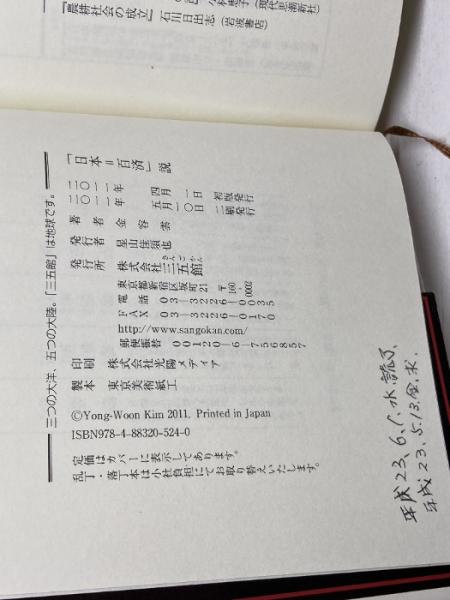 『農耕社会の成立』石川日出志（岩波書店）
「日本＝百済」説
二〇一一年 四月 一日 初版発行
二〇一一年 五月一〇日 二刷発行
著者 金容雲
発行者 星山佳須也
発行所 株式会社三五館
さんごかん
東京都新宿区坂町21 〒160-0002
電話 03-3226-0035
FAX 03-3226-0170
http://www.sangokan.com/
郵便振替 00120-6-756857
印刷 株式会社光陽メディア
製本 東京美術紙工
©Yong-Woon Kim 2011, Printed in Japan
ISBN978-4-88320-524-0
定価はカバーに表示してあります。
乱丁・落丁本は小社負担にてお取り替えいたします。
三つの大洋、五つの大陸。「三五館」は地球です。
平成23.6.1.水.読了
平成23.5.13.金.求.